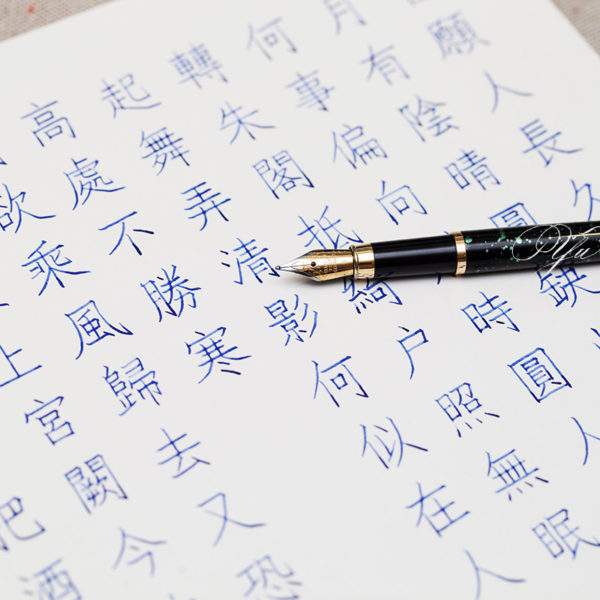 把酒
上宮闕今
欲乘風歸去又恐
高處不勝寒
起舞弄清影何似在人
轉朱閣抵綺户照無眠
何事偏向時圓人
月有陰晴圓缺
願人長久